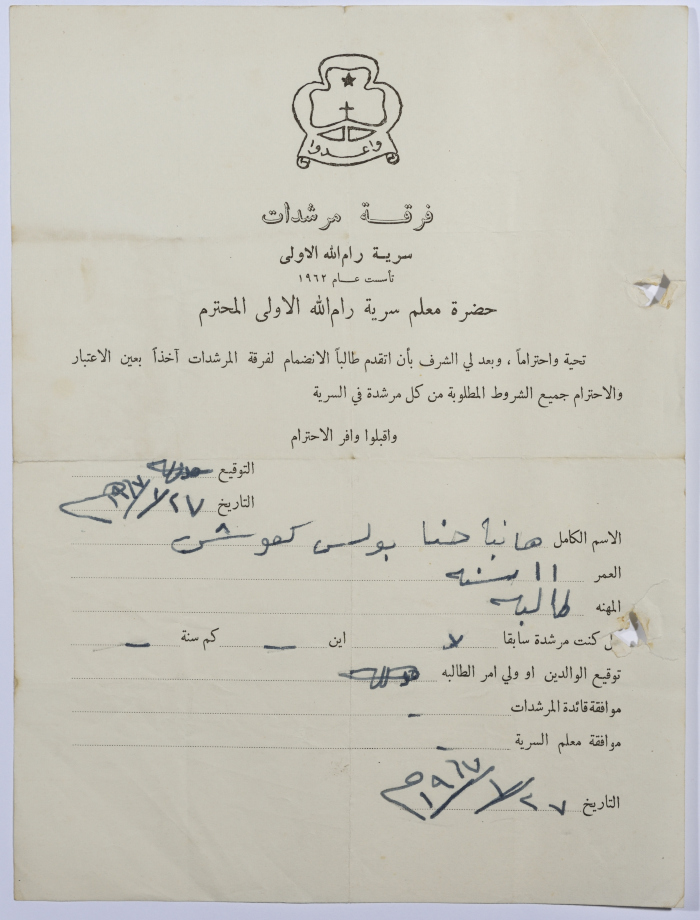 واعدوا
فرقة مرشدات
سرية رام الله الاولى
تأسست عام ١٩٦٢
حضرة معلم سرية رام الله الاولى المحترم
تحية واحتراماً ، وبعد لي الشرف بأن اتقدم طالباً الانضمام لفرقة المرشدات آخذاً بعين الاعتبار
والاحترام جميع الشروط المطلوبة من كل مرشدة في السرية
واقبلوا وافر الاحترام
التوقيع
التاريخ ٢٧/٧/١٩٦٧م
الاسم الكامل هانيا حنا بولس كعوش
العمر ١١ سنه
المهنه طالبه
كنت مرشدة سابقا لا اين – كم سنة –
توقيع الوالدين او ولي امر الطالبه
موافقة قائدة المرشدات -
موافقة معلم السرية -
التاريخ ٢٧/٧/١٩٦٧م